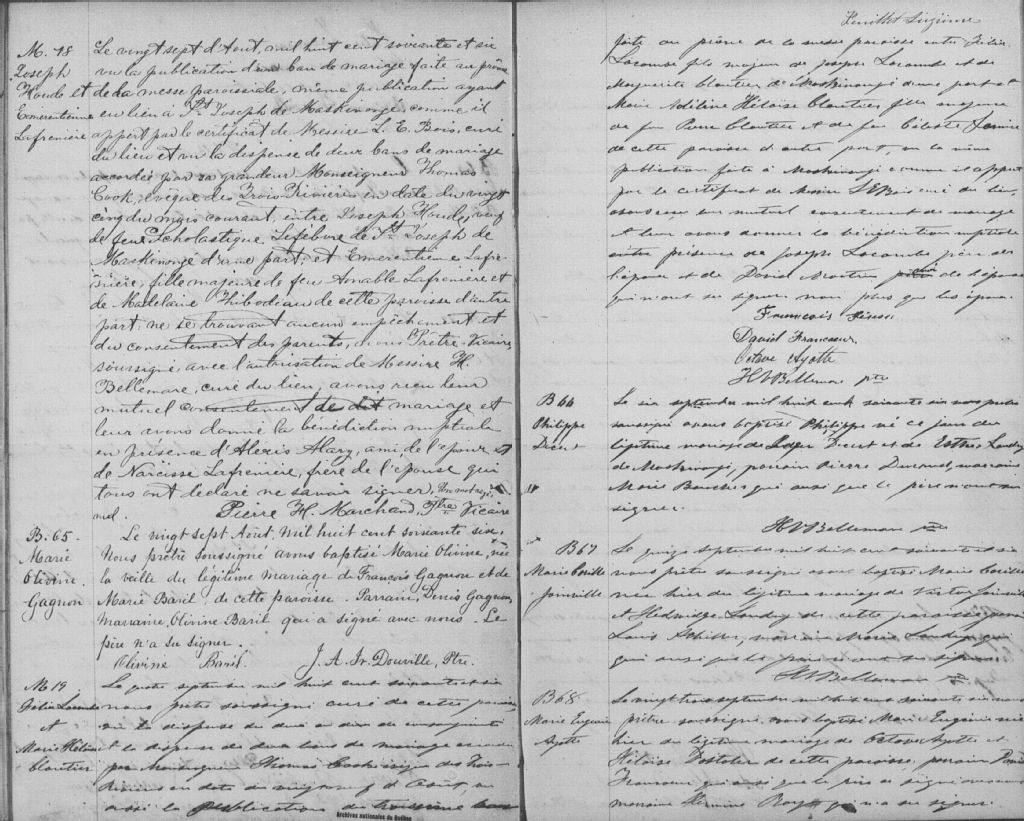 M. 18
Joseph
Houde et
Emerentienne
Lafrenière
Le vingt sept d'Aout, mil huit cent soixante et six
vu la publication d'un ban de mariage faite au prône
de la messe paroissiale, même publication ayant
eu lieu à St Joseph de Maskinongé comme il
appert par le certificat de Messire L. E. Bois, curé
du lieu et vu la dispense de deux bans de mariage
accordée par sa grandeur Monseigneur Thomas
Cook, évêque des Trois Rivières en date du vingt
cinq du mois courant, entre Joseph Houde, veuf
de feue Scholastique Lefebvre de St Joseph de
Maskinongé d'une part; et Emerentienne Lafre-
nière, fille majeure de feu Amable Lafrenière et
de Madelaine Thibodeau de cette paroisse d'autre
part; ne se trouvant aucun empêchement et
du consentement des parents, nous Prêtre-Vicaire
soussigné, avec l'autorisation de Messire H.
Bellemare, curé du lieu, avons reçu leur
mutuel consentement de dit mariage et
leur avons donné la bénédiction nuptiale
en présence d'Alexis Alary, ami de l'époux et
de Narcisse Lafrenière, frère de l'épouse qui
tous ont déclaré ne savoir signer. Un mot rayé
nul. Pierre H. Marchand, Ptre Vicaire
B. 65.
Marie
Olivine
Gagnon
Le vingt sept Août, mil huit cent soixante six,
Nous prêtre soussigné avons baptisé Marie Olivine, née
la veille du légitime mariage de François Gagnon et de
Marie Baril, de cette paroisse. Parrain, Denis Gagnon,
Marraine, Olivine Baril qui a signé avec nous. Le
père n'a su signer.
Olivine Baril. J. A. Ir. Douville, Ptre.
M 19
Félix Lacombe
et
Marie Héloise
Cloutier
Le quatre septembre mil huit cent soixante et six
nous prêtre soussigné curé de cette paroisse
vu la dispense du
et la dispense de deux bans de mariage accordée
par Monseigneur Thomas Cooke évêque des Trois-
Rivières en date du vingt neuf d'Août, vu
aussi la publication du troisième ban
Archives nationales du Québec
Feuillet onzième
faite au prône de la messe paroisse entre Félix
Lacombe fils majeur de Joseph Lacombe et de
Marguerite Cloutier de Maskinongé d'une part et
Marie Héloise Cloutier fille majeure
de feu Pierre Cloutier et de feu Céleste
de cette paroisse d'autre part, vu la même
publication faite à Maskinongé comme il appert
par le certificat de Messire L E Bois curé du lieu,
avons reçu leur mutuel consentement de mariage
et leur avons donné la bénédiction nuptiale
en présence de Joseph Lacombe père de
l'époux et de David de l'épouse
qui n'ont su signer non plus que les époux.
Francois
David Francoeur
Octave Ayotte
H Bellemare ptre
B 66
Philippe
Le six septembre mil huit cent soixante six nous prêtre
soussigné avons baptisé Philippe né ce jour du
légitime mariage de et de Esther Landry
de Maskinongé, parrain Pierre marraine
Marie Boucher qui ainsi que le père n'ont su
signer.
H Bellemare ptre
B 67
Marie
Joinville
Le septembre mil huit cent soixante et six
nous prêtre soussigné avons baptisé Marie
née hier du légitime mariage de Victor Joinville
et Hedwidge Landry de cette paroisse, parrain
Louis marraine Marie Landry qui
qui ainsi que le père n'ont su signer.
H Bellemare ptre
B 68
Marie Eugénie
Ayotte
Le vingt trois septembre mil huit cent soixante six nous
prêtre soussigné, avons baptisé Marie Eugénie née
hier du légitime mariage de Octave Ayotte et
Héloise de cette paroisse, parrain
Francoeur qui ainsi que le père a signé avec nous
marraine Hermine qui n'a su signer.